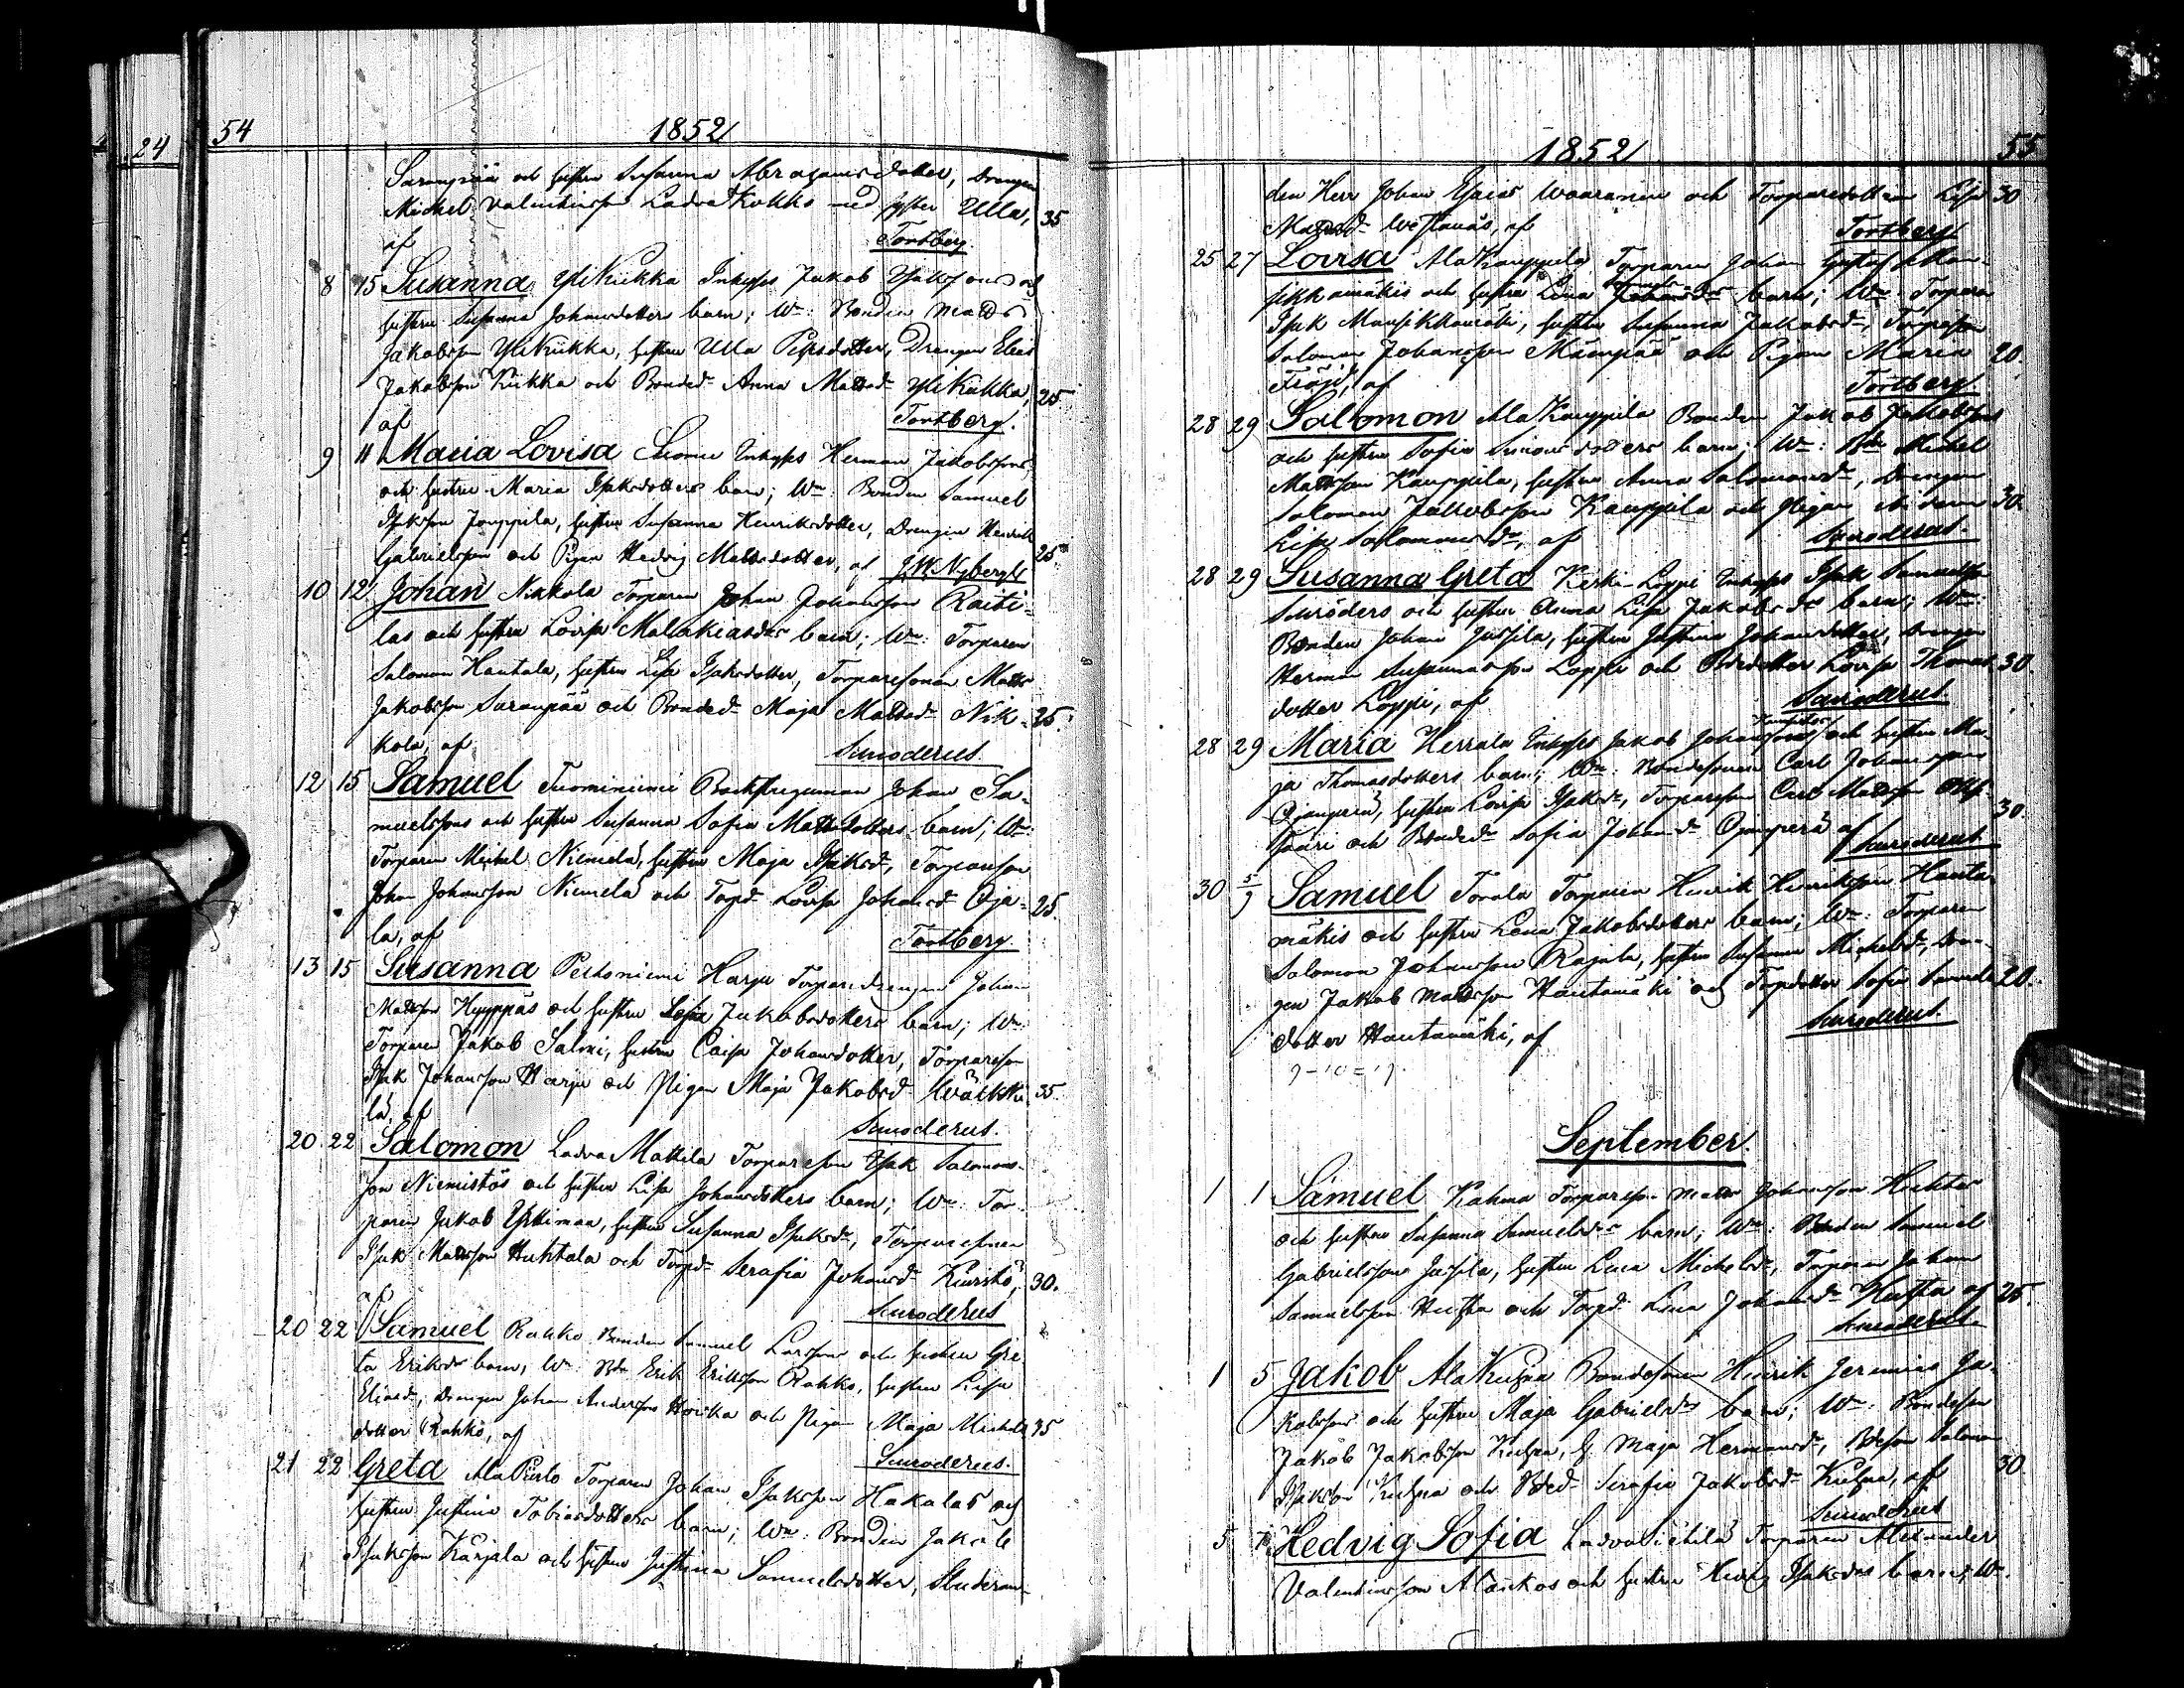 24
54
1852
Saranpää och hustrun Susanna Abrahamsdotter, Drengen
Michel Valentinsson Ladvakokko med syster Ulla, 35
af Tortberg.
8 15 Susanna YliKukka Inhyses Jakob Isakssons och
hustrun Susanna Johansdotters barn; Wn: Bonden Matts
Jakobsson YliKiikka, hustrun Ulla Dotter, Drengen Elias
Jakobsson Kiikka och Bonded: Anna Mattsd: YliKiikka, 25
af Tortberg.
9 11 Maria Lovisa Luoma Inhyses Herman Jakobssons
och hustrun Maria Isaksdotters barn; Wn: Bonden Samuel
Isaksson Jouppila, hustrun Susanna Henriksdotter, Drengen Henrik
Gabrielsson och Pigan Hedvig Mattsdotter, af J.W. Nybergh 25.
10 12 Johan Nikkola Torparen Johan Johansson Raiti-
las och hustrun Lovisa Mallakiasdrs barn; Wn: Torparen
Salomon Hautala, hustrun Lisa Isaksdotter, Torparesonen Matts
Jakobsson Saranpää och Bonded: Maja Mattsd: Nik- 25.
kola, af Snroderus.
12 15 Samuel Tuominiemi Backstuguman Johan Sa-
muelssons och hustrun Susanna Sofia Mattsdotters barn; Wn:
Torparen Michel Niemelä, hustrun Maja Isaksd:, Torpareson
Johan Johansson Niemelä och Torpd: Lovisa Johansd: Oja- 25.
la, af Tortberg.
13 15 Susanna Peltoniemi Harju Torparedrengen Johan
Mattsson Hyyppäs och hustrun Lisa Jakobsdotters barn; Wn:
Torparen Jakob Salmi, hustrun Caisa Johansdotter, Torpareson
Isak Johansson Harju och Pigan Maja Jakobsd: 35.
lä, af Snroderus.
20 22 Salomon Ladva Mattila Torpareson Isak Salomons-
son Niemistös och hustrun Lisa Johansdotters barn; Wn: Tor-
paren Jakob hustrun Susanna Isaksd:, Torparesonen
Isak Mattsson Huhtala och Torpd: Serafia Johansd: 30.
af Snroderus
20 22 Samuel Rahko Bonden Samuel Larssons och hustrun Gre-
ta Eriksdrs barn, Wn: Bdn Erik Eriksson Rahko, hustrun Lisa
Eliasd:, Drengen Johan Andersson och Pigan Maja Michels 35
dotter Rahko, af Snroderus.
21 22 Greta AlaPiirto Torparen Johan Isaksson Hakalas och
hustrun Justina Tobiasdotters barn; Wn: Bonden Jakob
Isaksson Karjala och hustrun Justina Samuelsdotter, Studeran-
1852
55
den Herr Johan Esaias Waaranen och Torparedottern Lisa 30
Mattsd: af Tortberg
25 27 Lovisa AlaKauppila Torparen Johan Gustaf Man-
sikkamäkis och hustrun Lena barn; Wn: Torparen
Isak Mansikkamäki, hustrun Susanna Jakobsd:, Torpareson
Salomon Johansson Mäenpää och Pigan Maria 20.
Fröjd, af Tortberg.
28 29 Salomon AlaKauppila Bonden Jakob Jakobssons
och hustrun Sofia Simonsdotters barn; Wn: Bdn Michel
Mattsson Kauppila, hustrun Anna Salomonsd:, Drengen
Salomon Jakobsson Kauppila och Pigan 30.
Lisa Salomonsdr, af Snroderus.
28 29 Susanna Greta Loppi Inhyses Isak Samuelsson
Snröders och hustrun Anna Lisa Jakobsdrs barn; Wn:
Bonden Johan Jussila, hustrun Justina Johansdotter, Drengen
Herman Susannasson Loppi och Bdedotter Lovisa Thomas 30.
dotter Loppi, af Snroderus.
28 29 Maria Herrala Inhyses Jakob Johanssons och hustrun Ma-
ja Thomasdotters barn; Wn: Bondesonen Carl Johansson
Ojanperä, hustrun Lovisa Isaksdr, Torpareson Carl Mattsson 30.
saari och Bonded: Sofia Johansd: Ojanperä af Snroderus
30 5/9 Samuel Torala Torparen Henrik Henriksson Hauta-
mäkis och hustrun Lena Jakobsdotters barn; Wn: Torparen
Salomon Johansson Rajala, hustrun Susanna Michelsd:, Dren-
gen Jakob Mattsson Hautamäki och Torpdotter Sofia Samuels 20.
dotter Hautamäki, af Snroderus.
9-10=19.
September.
1 1 Samuel Kahma Torpareson Matts Johansson Huhtas
och hustrun Susanna Samuelsdrs barn; Wn: Bonden Samuel
Gabrielsson Jussila, hustrun Lena Michelsdr, Torparen Johan
Samuelsson Huhta och Torpd: Lena Johansdr Huhta af 25.
Snroderus.
1 5 Jakob AlaKuhna Bondesonen Henrik Jeremias Ja-
kobssons och hustrun Maja Gabrielsdrs barn; Wn: Bondeson
Jakob Jakobsson Kuhna, h. Maja Hermansd:, Bdeson Salomon
Isaksson Kuhna och Bded: Serafia Jakobsd: Kuhna, af 30.
Snroderus
5 Hedvig Sofia Ladvasichilä Torparen Alexander
Valentinsson Alankos och hustrun Hedvig Isaksdrs barn; Wn.